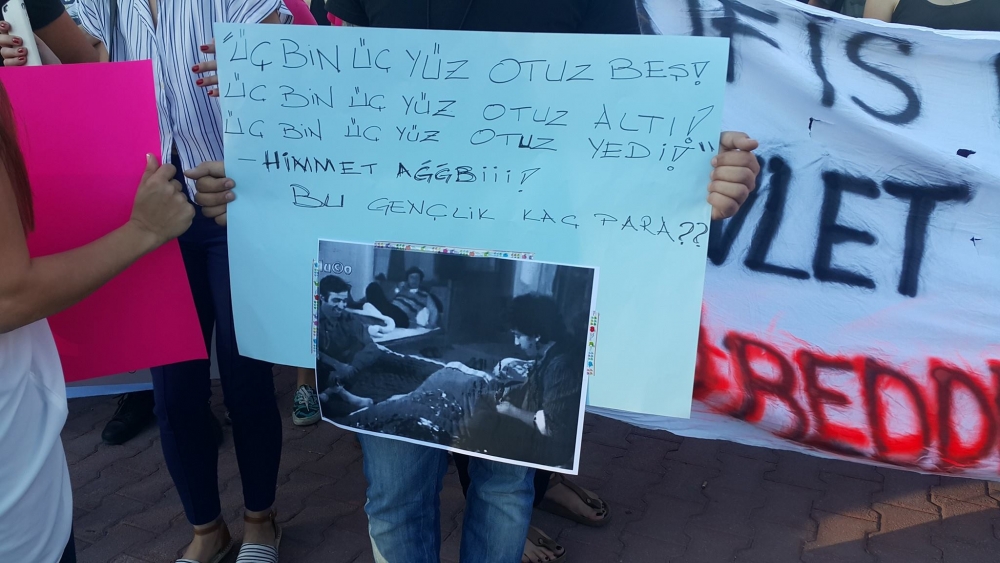 "ÜÇ BİN ÜÇ YÜZ OTUZ BEŞ!
ÜÇ BİN ÜÇ YÜZ OTUZ ALTI!
ÜÇ BİN ÜÇ YÜZ OTUZ YEDİ!"
- HİMMET AĞĞBİİİ!
BU GENÇLİK KAÇ PARA??